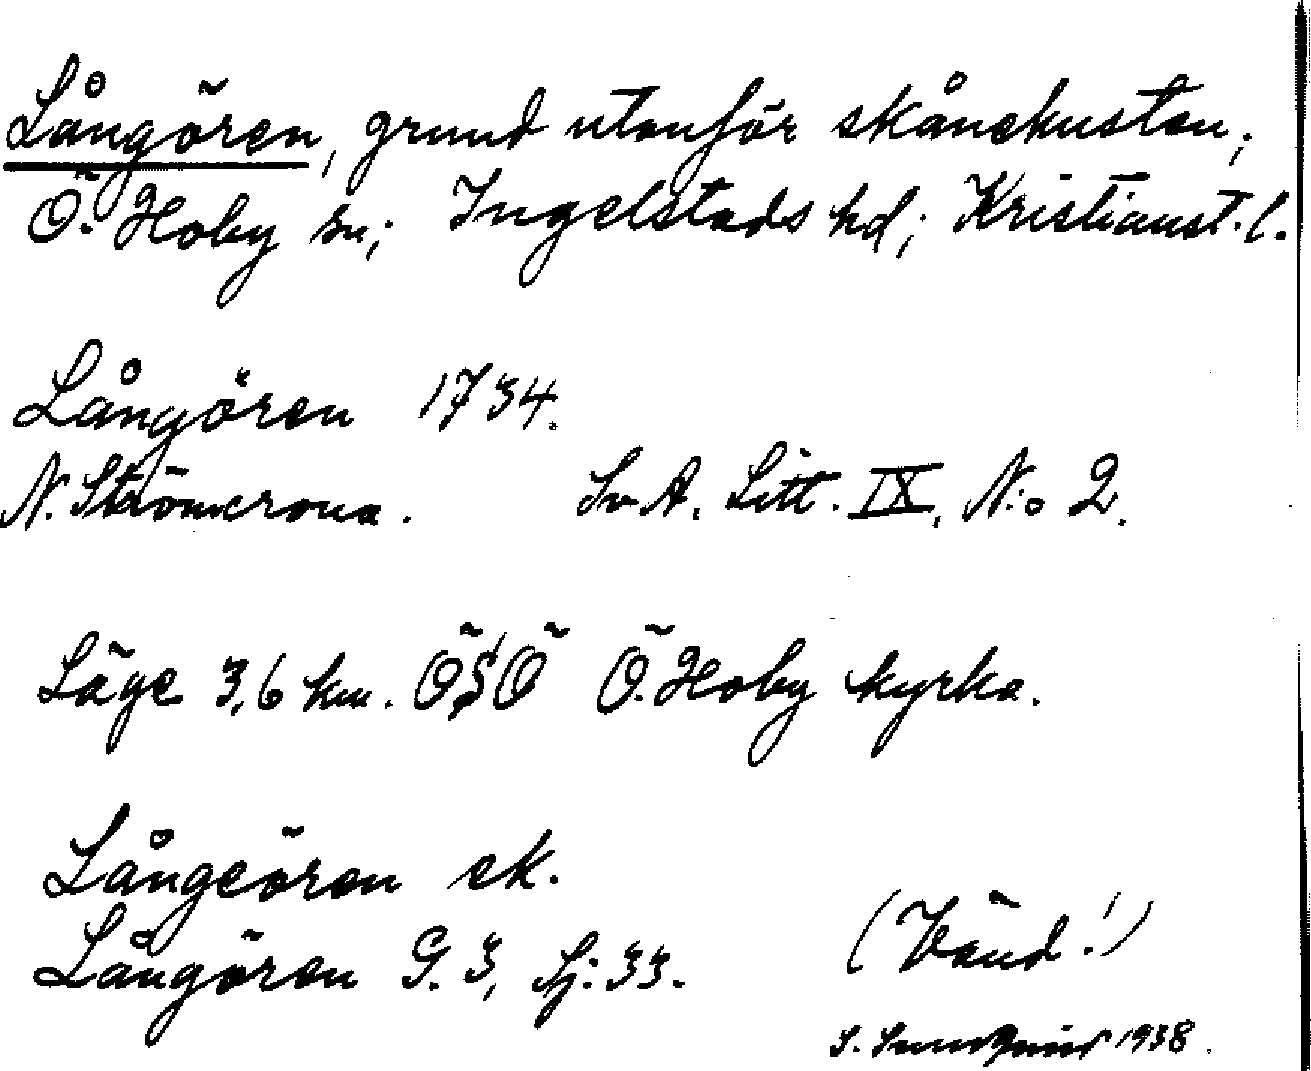 Långören, grund utanför skånekusten;
Ö. Hoby sn; Ingelstads hd; Kristianst. l.
Långören 1734.
N. Strömcrona. Sv A. Litt. IX, N:o 2.
Läge 3,6 km. ÖSÖ Ö. Hoby kyrka.
Långeören ek.
Långören G. 3, Sj: 33.
(Vänd!)
S. 1938.